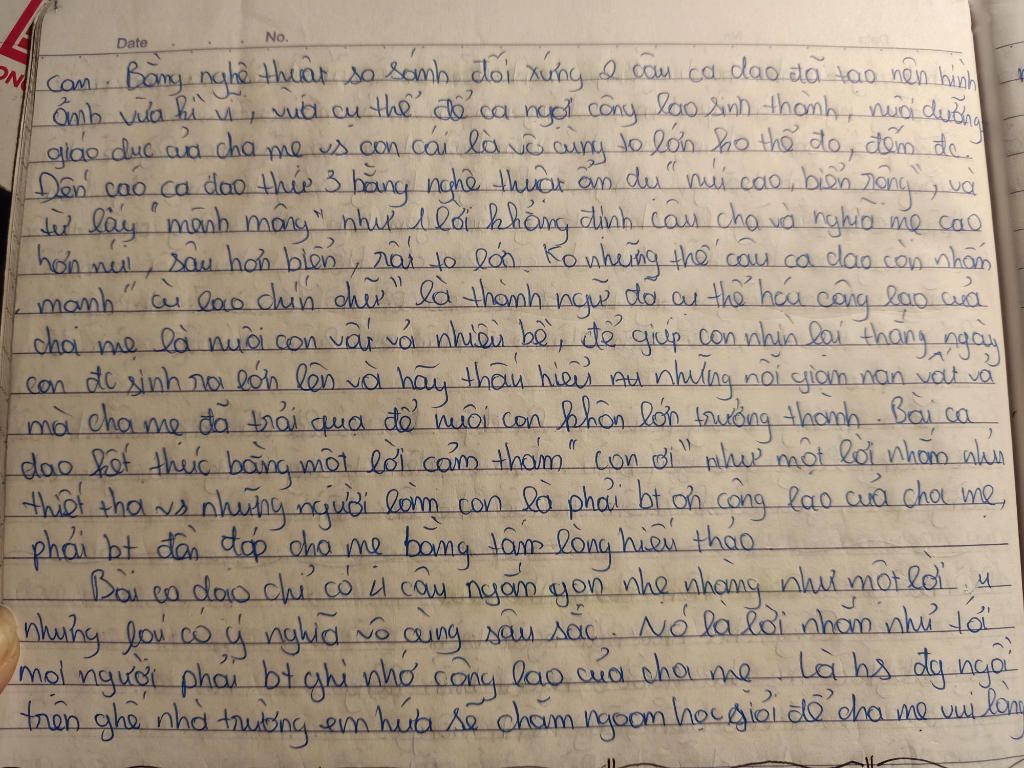 Date No.
con. Bằng nghệ thuật so sánh đối xứng 2 câu ca dao đã tạo nên hình
ảnh vừa kì vĩ, vừa cụ thể để ca ngợi công lao sinh thành, nuôi dưỡng
giáo dục của cha mẹ vs con cái là vô cùng to lớn ko thể đo, đếm đc.
Đến caô ca dao thứ 3 bằng nghệ thuật ẩn dụ "núi cao, biển rộng", và
từ láy "mênh mông" như 1 lời khẳng định câu cha và nghĩa mẹ cao
hơn núi, sâu hơn biển, rất to lớn. Ko những thế câu ca dao còn nhấn
mạnh "cù lao chín chữ" là thành ngữ đã cụ thể hóa công lao của
cha mẹ là nuôi con vất vả nhiều bề, để giúp con nhìn lại tháng ngày
con đc sinh ra lớn lên và hãy thấu hiểu những nỗi gian nan vất vả
mà cha mẹ đã trải qua để nuôi con khôn lớn trưởng thành. Bài ca
dao kết thúc bằng một lời cảm thán "con ơi" như một lời nhắn nhủ
thiết tha vs những người làm con là phải bt ơn công lao của cha mẹ,
phải bt đền đáp cha mẹ bằng tấm lòng hiếu thảo
Bài ca dao chỉ có 4 câu ngắn gọn nhẹ nhàng như một lời
nhưng lại có ý nghĩa vô cùng sâu sắc. Nó là lời nhắn nhủ tới
mọi người phải bt ghi nhớ công lao của cha mẹ. Là hs đg ngồi
trên ghế nhà trường em hứa sẽ chăm ngoan học giỏi để cha mẹ vui lòng